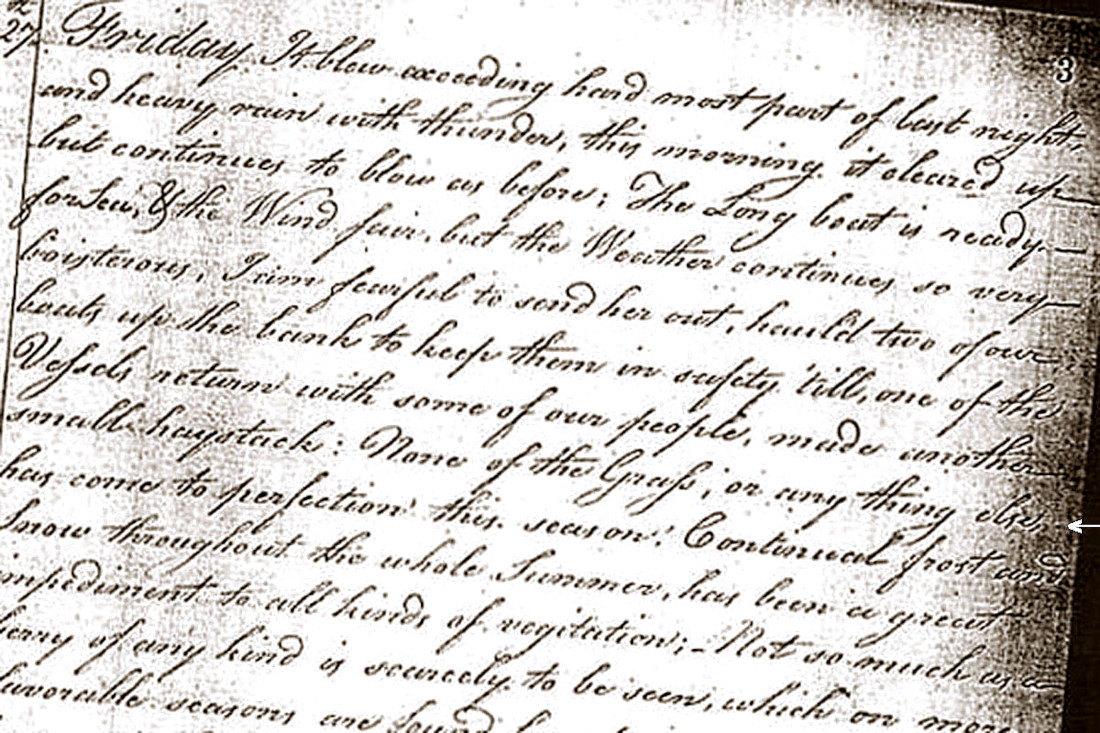 27 Friday. It blew exceeding hard most part of last night,
3
and heavy rain with thunder, this morning it cleared up
but continues to blow as before; The Long boat is ready
for Sea, & the Wind fair, but the Weather continues so very
boisterous, I am fearful to send her out, hauld two of our
boats up the bank to keep them in safety 'till, one of the
Vessels return with some of our people, made another
small haystack: None of the Grass, or any thing else
has come to perfection this season: Continual frost and
Snow throughout the whole Summer, has been a great
impediment to all kinds of vegitation; Not so much as a
berry of any kind is scarcely to be seen, which on more
favorable seasons are found